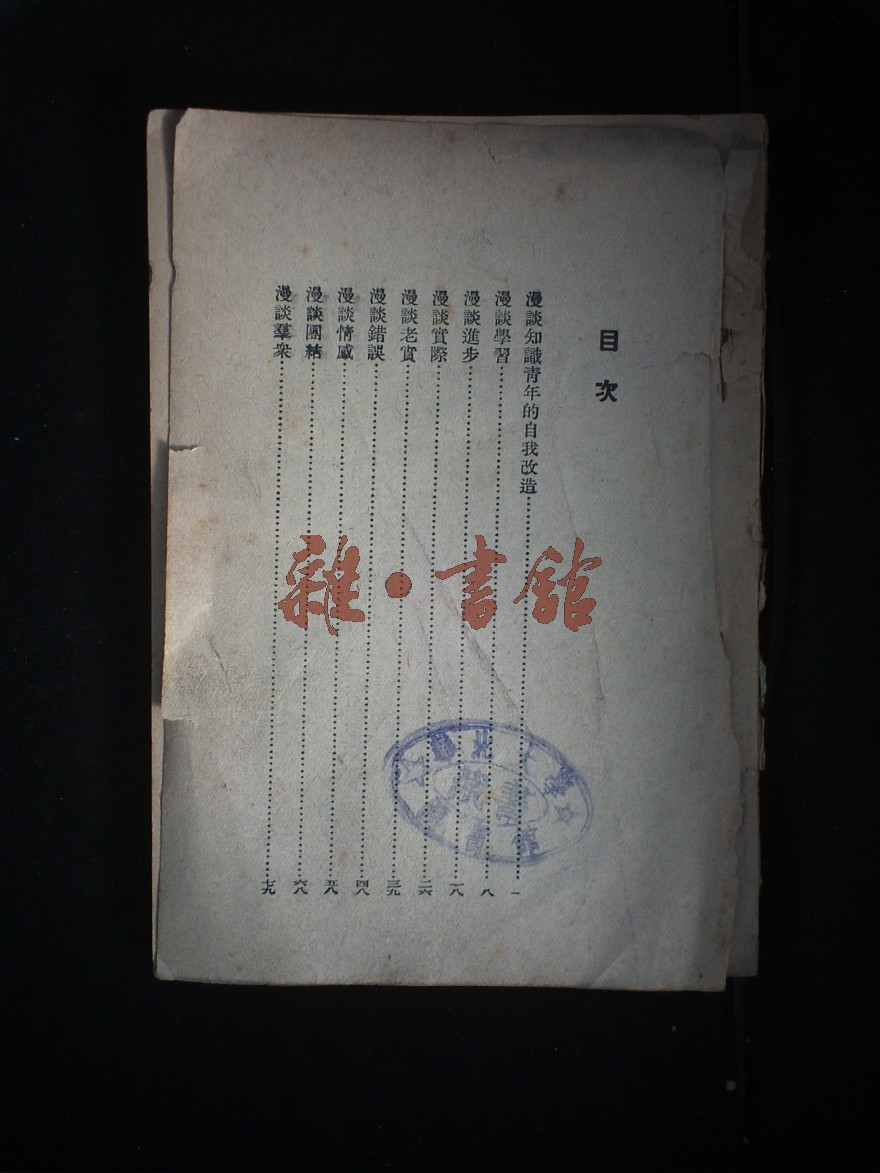 目次
漫談知識青年的自我改造……一
漫談學習……八
漫談進步……一八
漫談實際……二六
漫談老實……三九
漫談錯誤……四八
漫談情感……五八
漫談團結……六八
漫談羣衆……七九
雜·書館